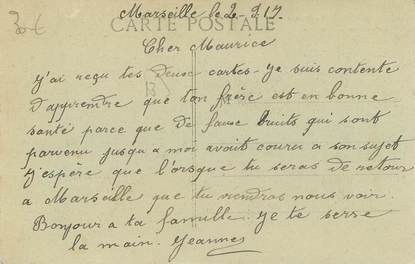 30€
Marseille le 2-9 17.
CARTE POSTALE
Cher Maurice
y'ai reçu tes deux cartes. je suis contente
d'apprendre que ton frère est en bonne
santé parce que de fause bruits qui sont
parvenu jusqu'a moi avait couru a son sujet
y'espère que l'orsque tu seras de retour
a Marseille que tu viendras nous voir.
Bonjour a ta famille. je te serre
la main. Jeannes